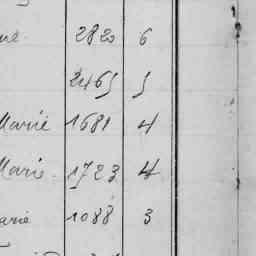 2820 6
2465 5
Marie 1681 4
Marie 1723 4
arie 1088 3